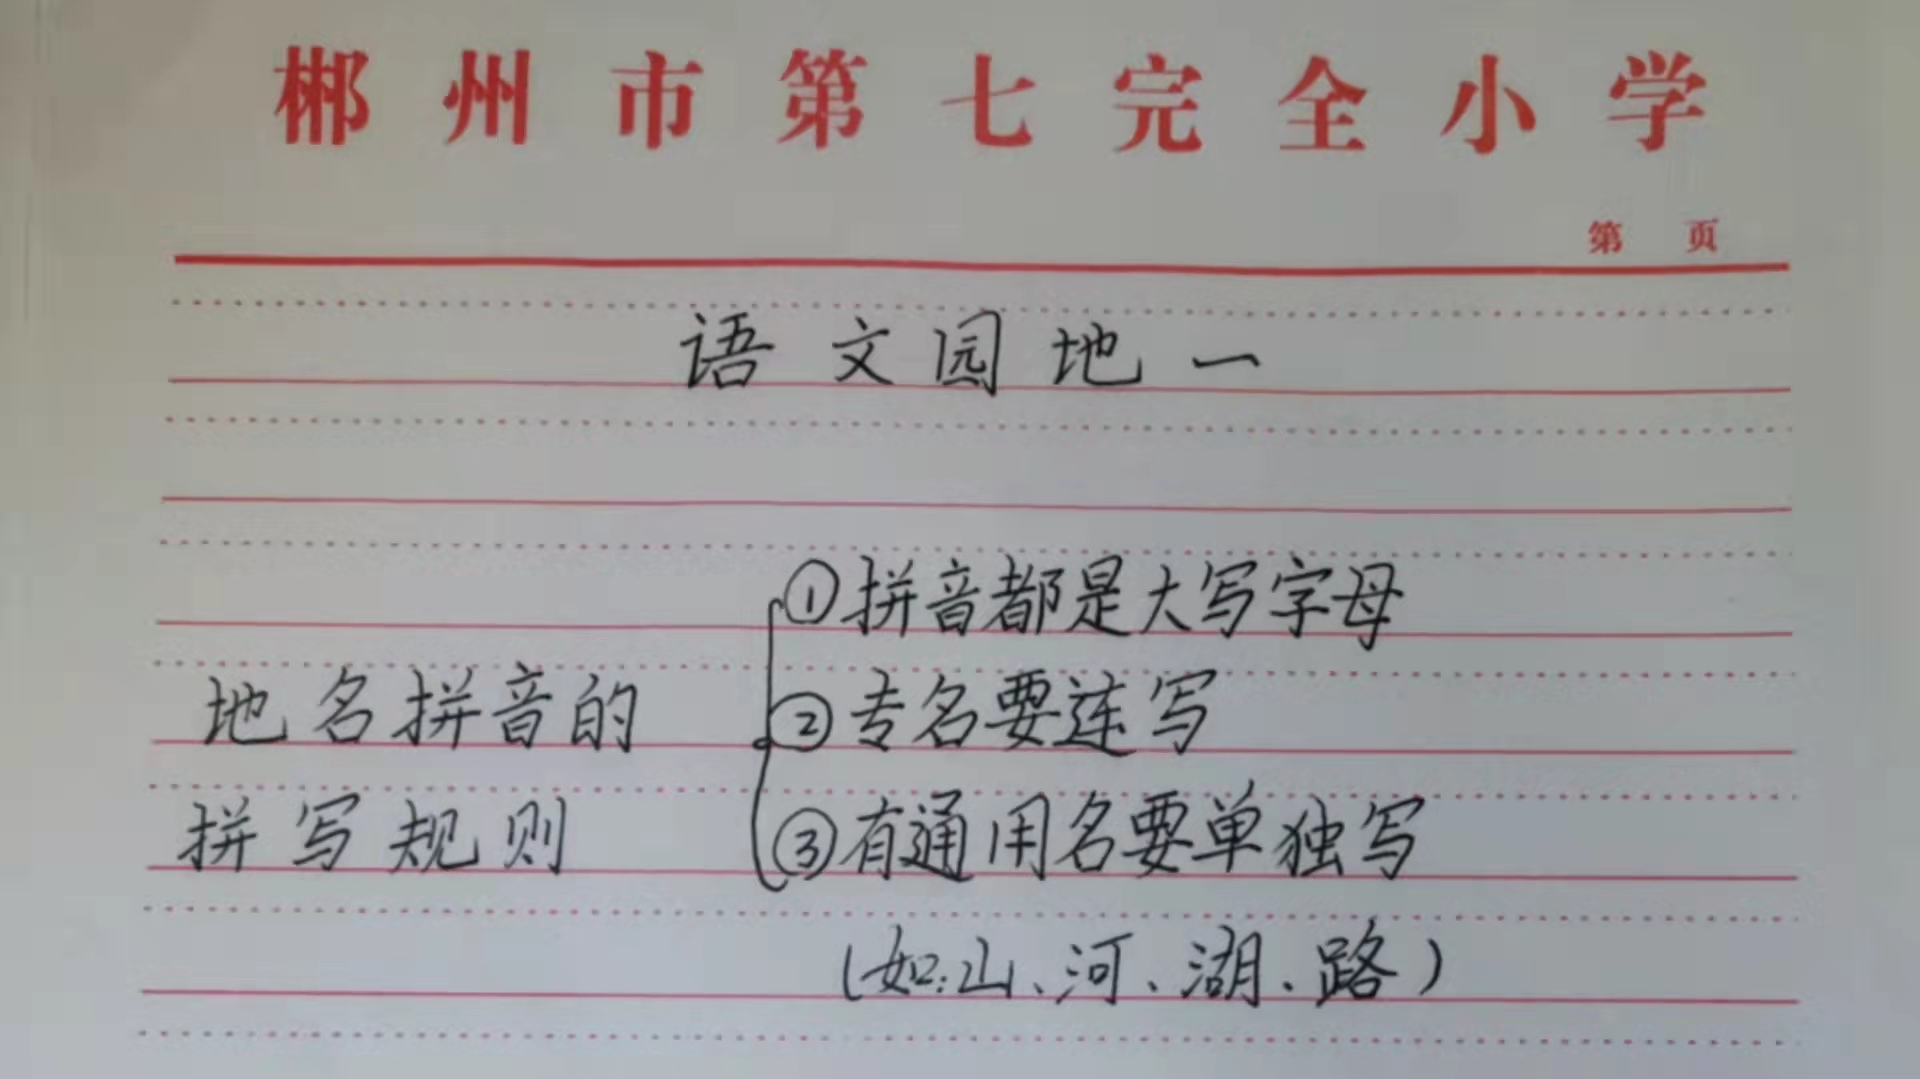 郴州市第七完全小学
第 页
语文园地一
①拼音都是大写字母
地名拼音的 ②专名要连写
拼写规则 ③有通用名要单独写
(如:山、河、湖、路)